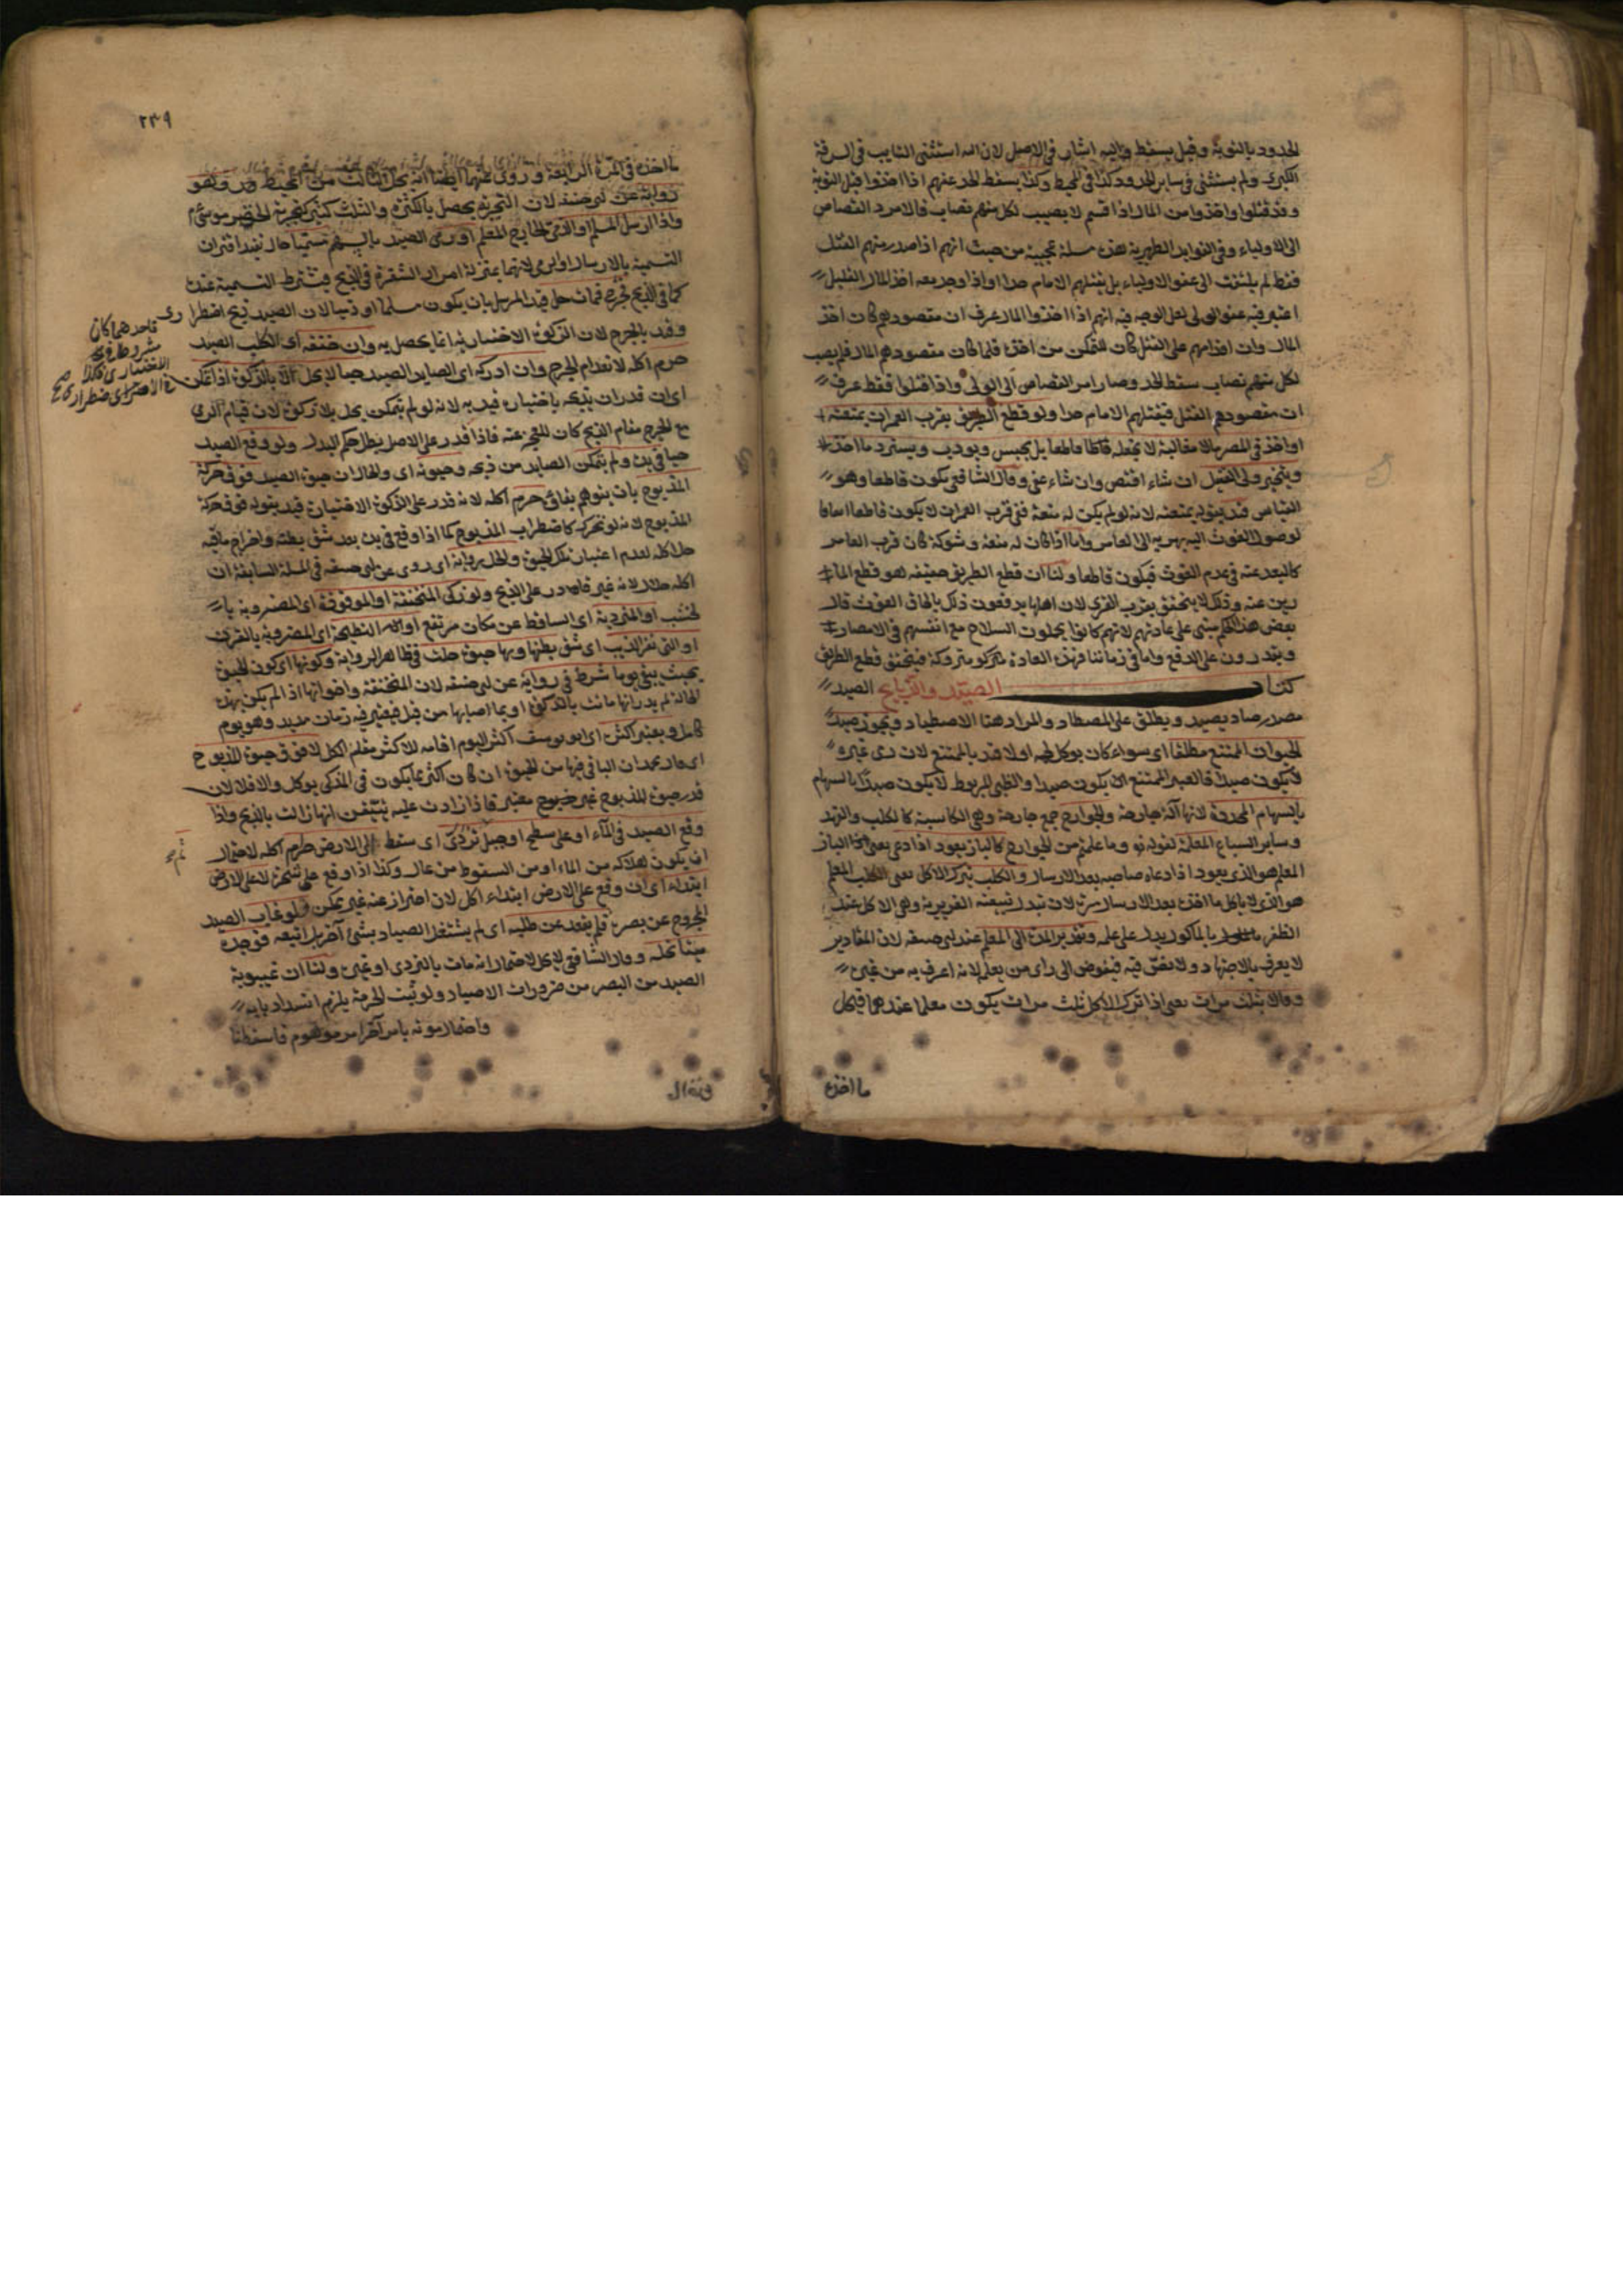 الحدود بالتوبة وقيل يسقط واليه اشار في الاصل لان الله استثنى التايب في السرقة
الكبرى ولم يستثنى في ساير الحدود كذا في المحيط وكذا يسقط الحد عنهم اذا اخذوا قبل التوبة
وقد قتلوا واخذوا من المال اذا قسم لا يصيب لكل منهم نصاب فالامر في القصاص
الى الاولياء وفي الفوايد الظهيرية هذه مسئلة عجيبة من حيث انهم اذا صدر منهم القتل
فقط لم يلتفت الى عفو الاولياء بل يقتلهم الامام حدا واذا وجد معه اخذ المال القليل
اعتبر فيه عفو الولي لعل الوجه فيه انهم اذا اخذوا المال عرف ان مقصودهم كان اخذ
المال وان اقدامهم على القتل كان للتمكن من اخذه فلما كان مقصودهم المال فلم يصب
لكل منهم نصاب سقط الحد وصار امر القصاص الى الولي واذا قتلوا فقط عرف
ان مقصودهم القتل فيقتلهم الامام حدا ولو قطع الطريق بقرب العمران بمنعة
او اخذ في المصر بالمغالبة لا يجعله قاطعا بل يحبس ويودب ويسترد ما اخذ
ويتخير ولي القتيل ان شاء اقتص وان شاء عفى وقال الشافعي يكون قاطعا وهو
القياس قيد بقوله بمنعة لانه لو لم يكن له منعة ففي قرب العمران لا يكون قاطعا
لوصول الغوث اليه بهربه الى العامر واما اذا كان له منعة وشوكة كان قرب العامر
كالبعد عنه في عدم الغوث فيكون قاطعا ولنا ان قطع الطريق حقيقة هو قطع الما
رين عنه وذلك لا يتحقق بقرب القرى لان اهلها يدفعون ذلك بالحاق الغوث قال
بعض هذا الحكم مبني على عادتهم لانهم كانوا يحملون السلاح مع انفسهم في الامصار
ويقدرون على الدفع واما في زماننا فهذه العادة متروكة فيتحقق قطع الطريق
كتاب الصيد والذبايح الصيد
مصدر صاد يصيد ويطلق على المصطاد والمراد هنا الاصطياد ويجوز صيد
الحيوان الممتنع مطلقا اي سواء كان يوكل لحمه اولا قيد بالممتنع لان رمي غيره
لا يكون صيدا فالبعير الممتنع يكون صيدا والظبي المربوط لا يكون صيدا بالسهام
بالسهام المحددة لانها آلة جارحة والجوارح جمع جارحة وهي الكاسبة كالكلب والفهد
وساير السباع المعلمة لقوله تع وما علمتم من الجوارح كالباز يعود اذا دعي يعني الباز
المعلم هو الذي يعود اذا دعاه صاحبه بعد الارسال والكلب بترك الاكل يعني الكلب المعلم
هو الذي لا ياكل ما اخذه بعد الارسال مرة لان تبدل طبيعته الغريزية وهي الاكل عند
الظفر بالماكول يدل على علمه وتقدير المدة الى المعلم عند ابي حنيفة لان المقادير
لا يعرف بالاجتهاد ولا نص فيه فيفوض الى راي من يعلم لانه اعرف به من غيره
وقالا بثلث مرات يعني اذا ترك الاكل ثلث مرات يكون معلما عندهما فيحل
ما اخذه
٢٣٩
ما اخذه في المرة الرابعة وروي عنهما ايضا انه يحل الثالث من المحيط وهو
رواية عن ابي حنيفة لان التجربة يحصل بالكثرة والثلث كثير كتجربة الخضر موسى م
واذا ارسل المسلم او الذمي الجارح المعلم او رمى الصيد بالسهم مسميا حال يفيد اقتران
التسمية بالارسال او الرمي لانهما بمنزلة امرار الشفرة في الذبح فيشترط التسمية عنده
كما في الذبح فجرح فمات حل قيد المرسل بان يكون مسلما او ذميا لان الصيد ذبح اضطرا
ري
فاحدهما كان
مشروطا في
الاختياري فكذا
في الاضطراري صح
وقيد بالجرح لان الذكوة الاختيارية انما يحصل به وان خنقه اي الكلب الصيد
حرم اكله لانعدام الجرح وان ادركه اي الصايد الصيد حيا لا يحل الا بالذكوة اذا تمكن
اي ان قدر ان يذبحه باختياره قيد به لانه لو لم يتمكن يحل بلا ذكوة لان قيام الرمي
مع الجرح مقام الذبح كان للعجز عنه فاذا قدر على الاصل بطل حكم البدل ولو وقع الصيد
حيا في يده ولم يتمكن الصايد من ذبحه وحيوته اي والحال ان حيوة الصيد فوق حركة
المذبوح بان يتوهم بقاؤه حرم اكله لانه قدر على الذكوة الاختيارية قيد بقوله فوق حركة
المذبوح لانه لو تحرك كاضطراب المذبوح كما اذا وقع في يده بعد شق بطنه واخراج ما فيه
حل اكله لعدم اعتبار تلك الحيوة والحل رواية اي روي عن ابي حنيفة في المسئلة السابقة ان
اكله حلال لانه غير قادر على الذبح ولو ذكى المنخنقة او الموقوذة اي المضروبة با
لخشب او المتردية اي الساقط عن مكان مرتفع او النطيحة اي المضروبة بالقرن
او التي بقر الذيب اي شق بطنها وبها حيوة حلت في ظاهر الرواية وكونها اي كون الحيوة
بحيث يبقى يوما شرط في رواية عن ابي حنيفة لان المنخنقة واخواتها اذا لم يكن بهذه
الحالة لم يدر انها ماتت بالذكوة او بما اصابها من قبل فيعتبر فيه زمان مديد وهو يوم
كامل ويعتبر اكثره اي ابو يوسف اكثر اليوم اقامة للاكثر مقام الكل لا فوق حيوة المذبوح
اي قال محمد ان الباقي فيها من الحيوة ان كان اكثر مما يكون في المذكى يوكل والا فلا لان
قدر حيوة المذبوح غير معتبر فاذا زادت عليه يتيقن انها زالت بالذبح واذا
وقع الصيد في الماء او على سطح او جبل تردى اي سقط الى الارض حرم اكله لاحتمال
ان يكون هلاكه من الماء او من السقوط من عال وكذا اذا وقع على شجر لا على الارض
ابتداء اي ان وقع على الارض ابتداء اكل لان احتراز عنه غير ممكن ولو غاب الصيد
المجروح عن بصره فلم يقعد عن طلبه اي لم يشتغل الصياد بشئ آخر بل اتبعه فوجده
ميتا نحله وقال الشافعي لا يحل لاحتمال انه مات بالتردي او غيره ولنا ان غيبوبة
الصيد من البصر من ضرورات الاصياد ولو ثبت الحرمة يلزم انسداد بابه
واحتمال موته بامر آخر امر موهوم فاسقطنا